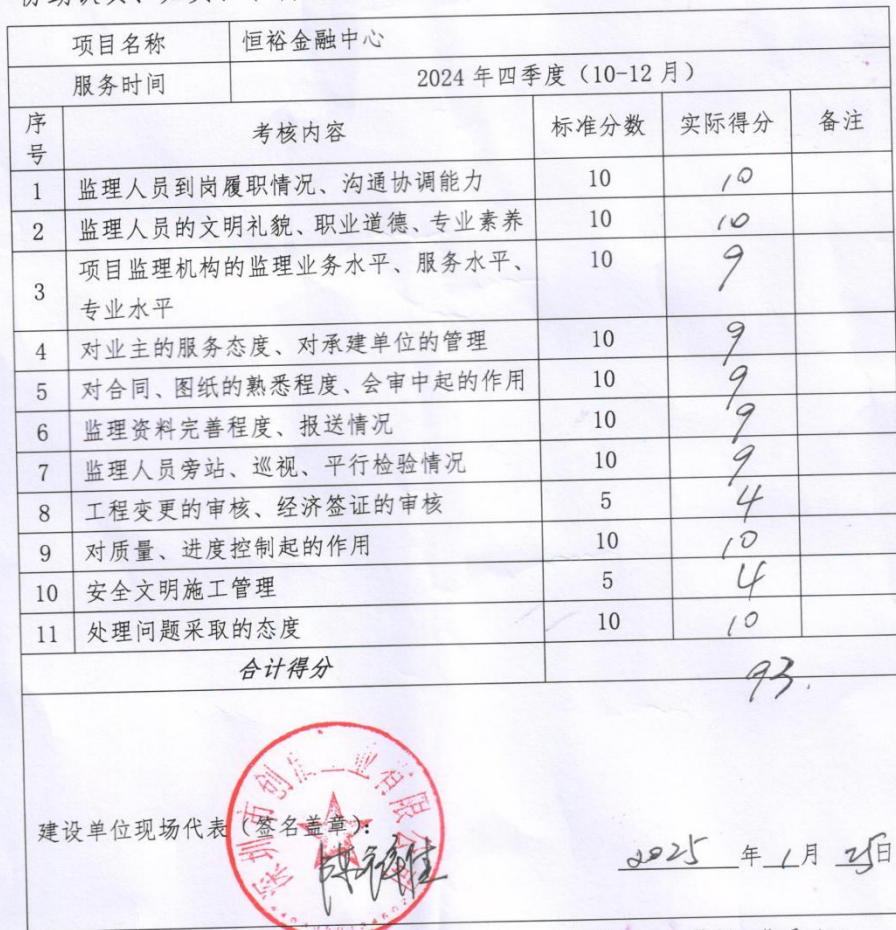 项目名称 恒裕金融中心
服务时间 2024年四季度（10-12月）
序号 考核内容 标准分数 实际得分 备注
1 监理人员到岗履职情况、沟通协调能力 10 10
2 监理人员的文明礼貌、职业道德、专业素养 10 10
3 项目监理机构的监理业务水平、服务水平、 10 9
专业水平
4 对业主的服务态度、对承建单位的管理 10 9
5 对合同、图纸的熟悉程度、会审中起的作用 10 9
6 监理资料完善程度、报送情况 10 9
7 监理人员旁站、巡视、平行检验情况 10 9
8 工程变更的审核、经济签证的审核 5 4
9 对质量、进度控制起的作用 10 10
10 安全文明施工管理 5 4
11 处理问题采取的态度 10 10
合计得分 93.
深圳市创恒工业有限公司
建设单位现场代表（签名盖章）：
2025年1月25日